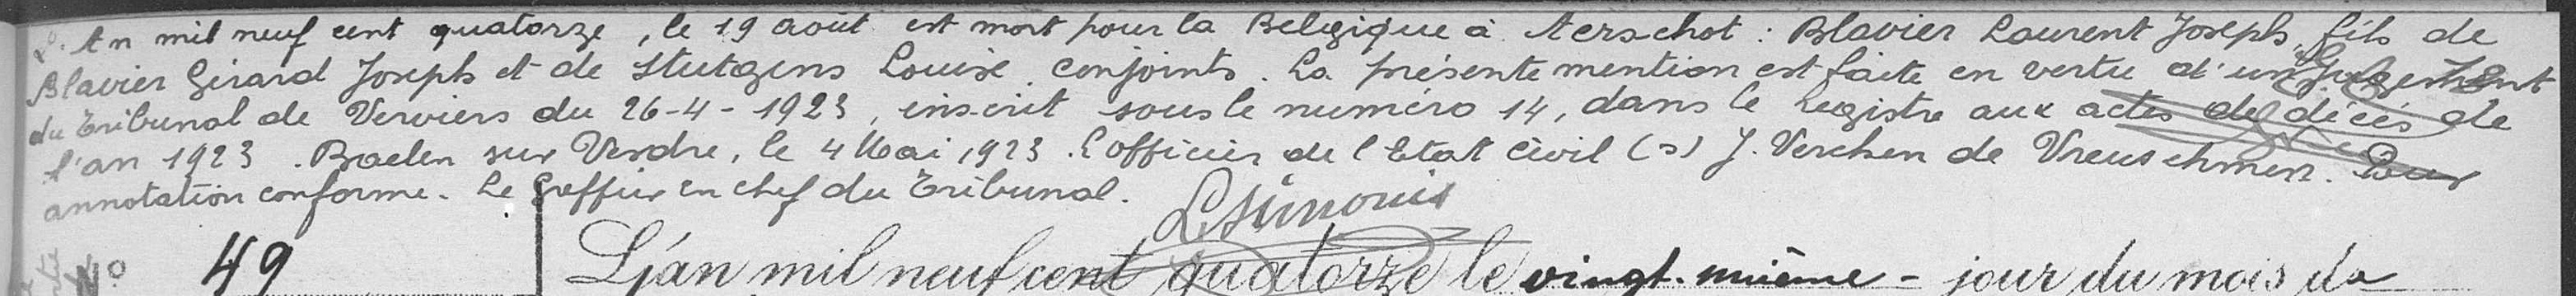 L'An mil neuf cent quatorze, le 19 août est mort pour la Belgique à Aerschot : Blavier Laurent Joseph, fils de
Blavier Girard Joseph et de Stutzgens Louise conjoints. La présente mention est faite en vertu d'un Jugement
du Tribunal de Verviers du 26-4-1923, inscrit sous le numéro 14, dans le Registre aux actes de décès de
l'an 1923. Baelen sur Vesdre, le 4 Mai 1923. L'officier de l'Etat civil (s) J. Verchen de Vreuschmen. Pour
annotation conforme. Le Greffier en chef du Tribunal.
LSimonis
N° 49 L'an mil neuf cent quatorze le vingt-unième - jour du mois de